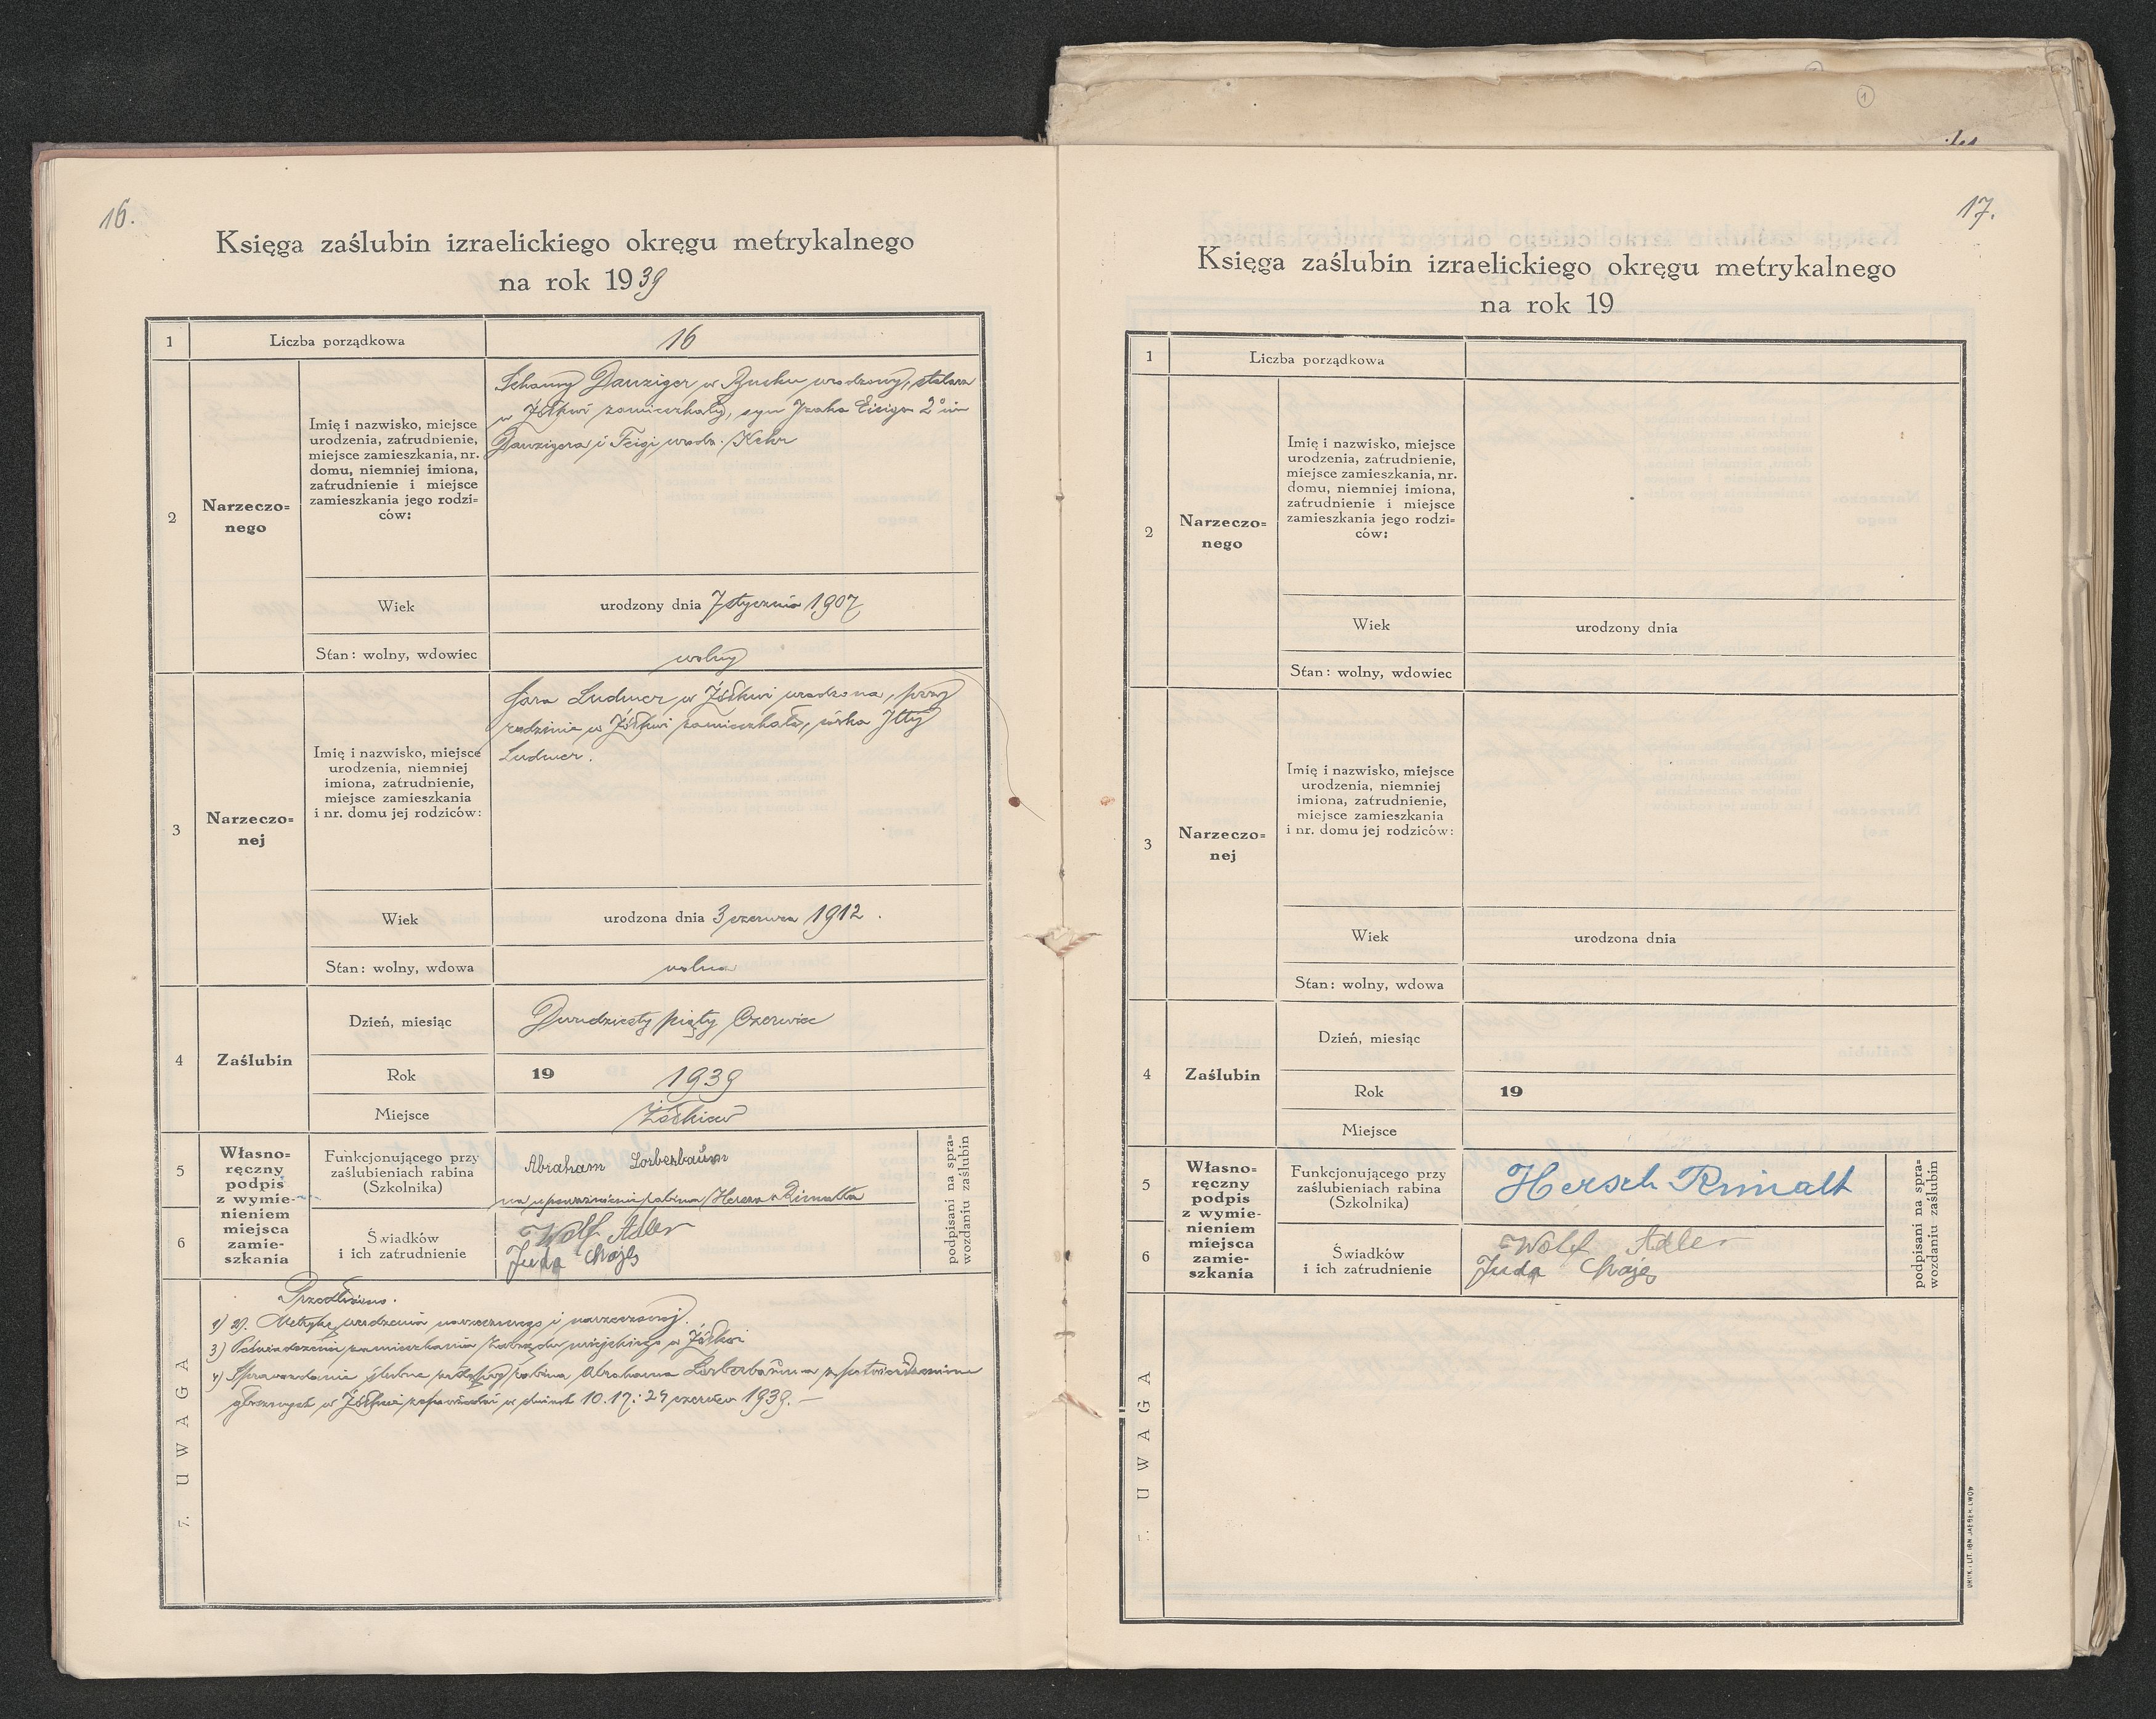 16.
Księga zaślubin izraelickiego okręgu metrykalnego
na rok 1939
1
Liczba porządkowa
16
2
Narzeczo=
nego
Imię i nazwisko, miejsce
urodzenia, zatrudnienie,
miejsce zamieszkania, nr.
domu, niemniej imiona,
zatrudnienie i miejsce
zamieszkania jego rodzi=
ców:
Danziger w Busku urodzony, stolarz
w Żółkwi zamieszkały, syn Izaka Eisiga 2º im
Danzigera i Feigi urodz. Kehr
Wiek
urodzony dnia 7 stycznia 1907
Stan: wolny, wdowiec
wolny
3
Narzeczo=
nej
Imię i nazwisko, miejsce
urodzenia, niemniej
imiona, zatrudnienie,
miejsce zamieszkania
i nr. domu jej rodziców:
Sara Ludmer w Żółkwi urodzona, przy
rodzinie w Żółkwi zamieszkała, córka Itty
Ludmer.
Wiek
urodzona dnia 3 czerwca 1912.
Stan: wolny, wdowa
wolna
4
Zaślubin
Dzień, miesiąc
Dwudziesty piąty Czerwiec
Rok
19 1939
Miejsce
Żółkiew
5
6
Własno=
ręczny
podpis
z wymie=
nieniem
miejsca
zamie=
szkania
Funkcjonującego przy
zaślubieniach rabina
(Szkolnika)
Abraham Lorberbaum
na upoważnienie rabina Hersza Rimalta
Świadków
i ich zatrudnienie
Wolf Adler
Juda Chajes
podpisani na spra=
wozdaniu zaślubin
7. UWAGA
Przedłożono.
1) 2). Metrykę urodzenia narzeczonego i narzeczonej.
3) Poświadczenie zamieszkania Zarządu miejskiego w Żółkwi
4) Sprawozdanie ślubne rabina Abrahama Lorberbauma z potwierdzeniem
głoszonych w Żółkwi zapowiedzi w dniach 10. 17. i 24 czerwca 1939. –
17.
Księga zaślubin izraelickiego okręgu metrykalnego
na rok 19
1
Liczba porządkowa
2
Narzeczo=
nego
Imię i nazwisko, miejsce
urodzenia, zatrudnienie,
miejsce zamieszkania, nr.
domu, niemniej imiona,
zatrudnienie i miejsce
zamieszkania jego rodzi=
ców:
Wiek
urodzony dnia
Stan: wolny, wdowiec
3
Narzeczo=
nej
Imię i nazwisko, miejsce
urodzenia, niemniej
imiona, zatrudnienie,
miejsce zamieszkania
i nr. domu jej rodziców:
Wiek
urodzona dnia
Stan: wolny, wdowa
4
Zaślubin
Dzień, miesiąc
Rok
19
Miejsce
5
6
Własno=
ręczny
podpis
z wymie=
nieniem
miejsca
zamie=
szkania
Funkcjonującego przy
zaślubieniach rabina
(Szkolnika)
Hersch Rimalt
Świadków
i ich zatrudnienie
Wolf Adler
Juda Chajes
podpisani na spra=
wozdaniu zaślubin
UWAGA
DRUK. i LIT. IGN. JAEGER, LWÓW
1